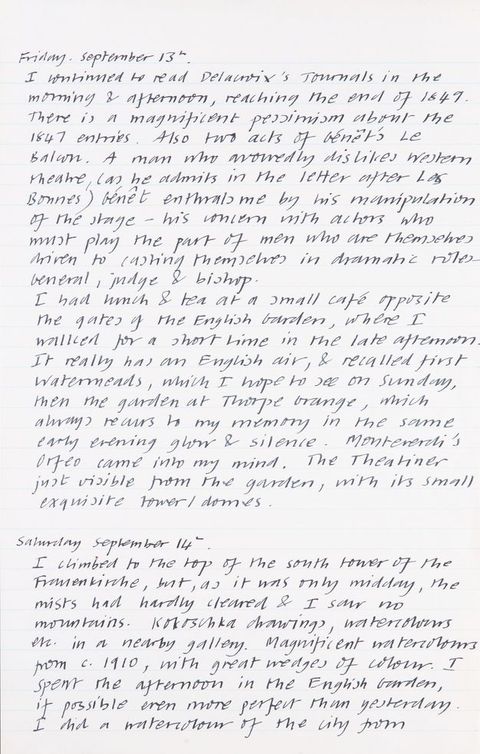 Friday. September 13th.
I continued to read Delacroix's Journals in the
morning & afternoon, reaching the end of 1847.
There is a magnificent pessimism about the
1847 entries. Also two acts of Genêt's Le
Balcon. A man who avowedly dislikes western
theatre, (as he admits in the letter after Les
Bonnes) Genêt enthrals me by his manipulation
of the stage – his concern with actors who
must play the part of men who are themselves
driven to casting themselves in dramatic roles
General, judge & bishop.
I had lunch & tea at a small café opposite
the gates of the English Garden, where I
walked for a short time in the late afternoon.
It really has an English air, & recalled first
Watermeads, which I hope to see on Sunday,
then the garden at Thorpe Grange, which
always recurs to my memory in the same
early evening glow & silence. Monteverdi's
Orfeo came into my mind. The Theatiner
just visible from the garden, with its small
exquisite tower/domes.
Saturday September 14th.
I climbed to the top of the south tower of the
Frauenkirche, but, as it was only midday, the
mists had hardly cleared & I saw no
mountains. Kokoschka drawings, watercolours
etc. in a nearby gallery. Magnificent watercolours
from c. 1910, with great wedges of colour. I
spent the afternoon in the English Garden,
if possible even more perfect than yesterday.
I did a watercolour of the city from